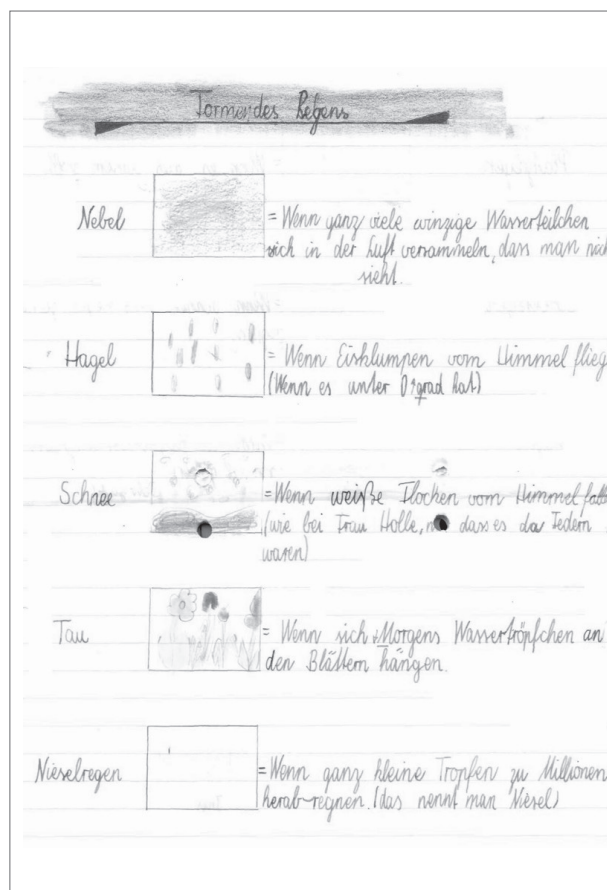 Formen des Regens
Nebel = Wenn ganz viele winzige Wasserteilchen
sich in der Luft versammeln, dass man nich
sieht.
Hagel = Wenn Eisklumpen vom Himmel flieg
(Wenn es unter 0°grad hat)
Schnee = Wenn weiße Flocken vom Himmel falle
(wie bei Frau Holle, dass es da Federn
waren)
Tau = Wenn sich Morgens Wassertröpfchen an
den Blättern hängen.
Nieselregen = Wenn ganz kleine Tropfen zu Millionen
herab-regnen. (das nennt man Niesel)